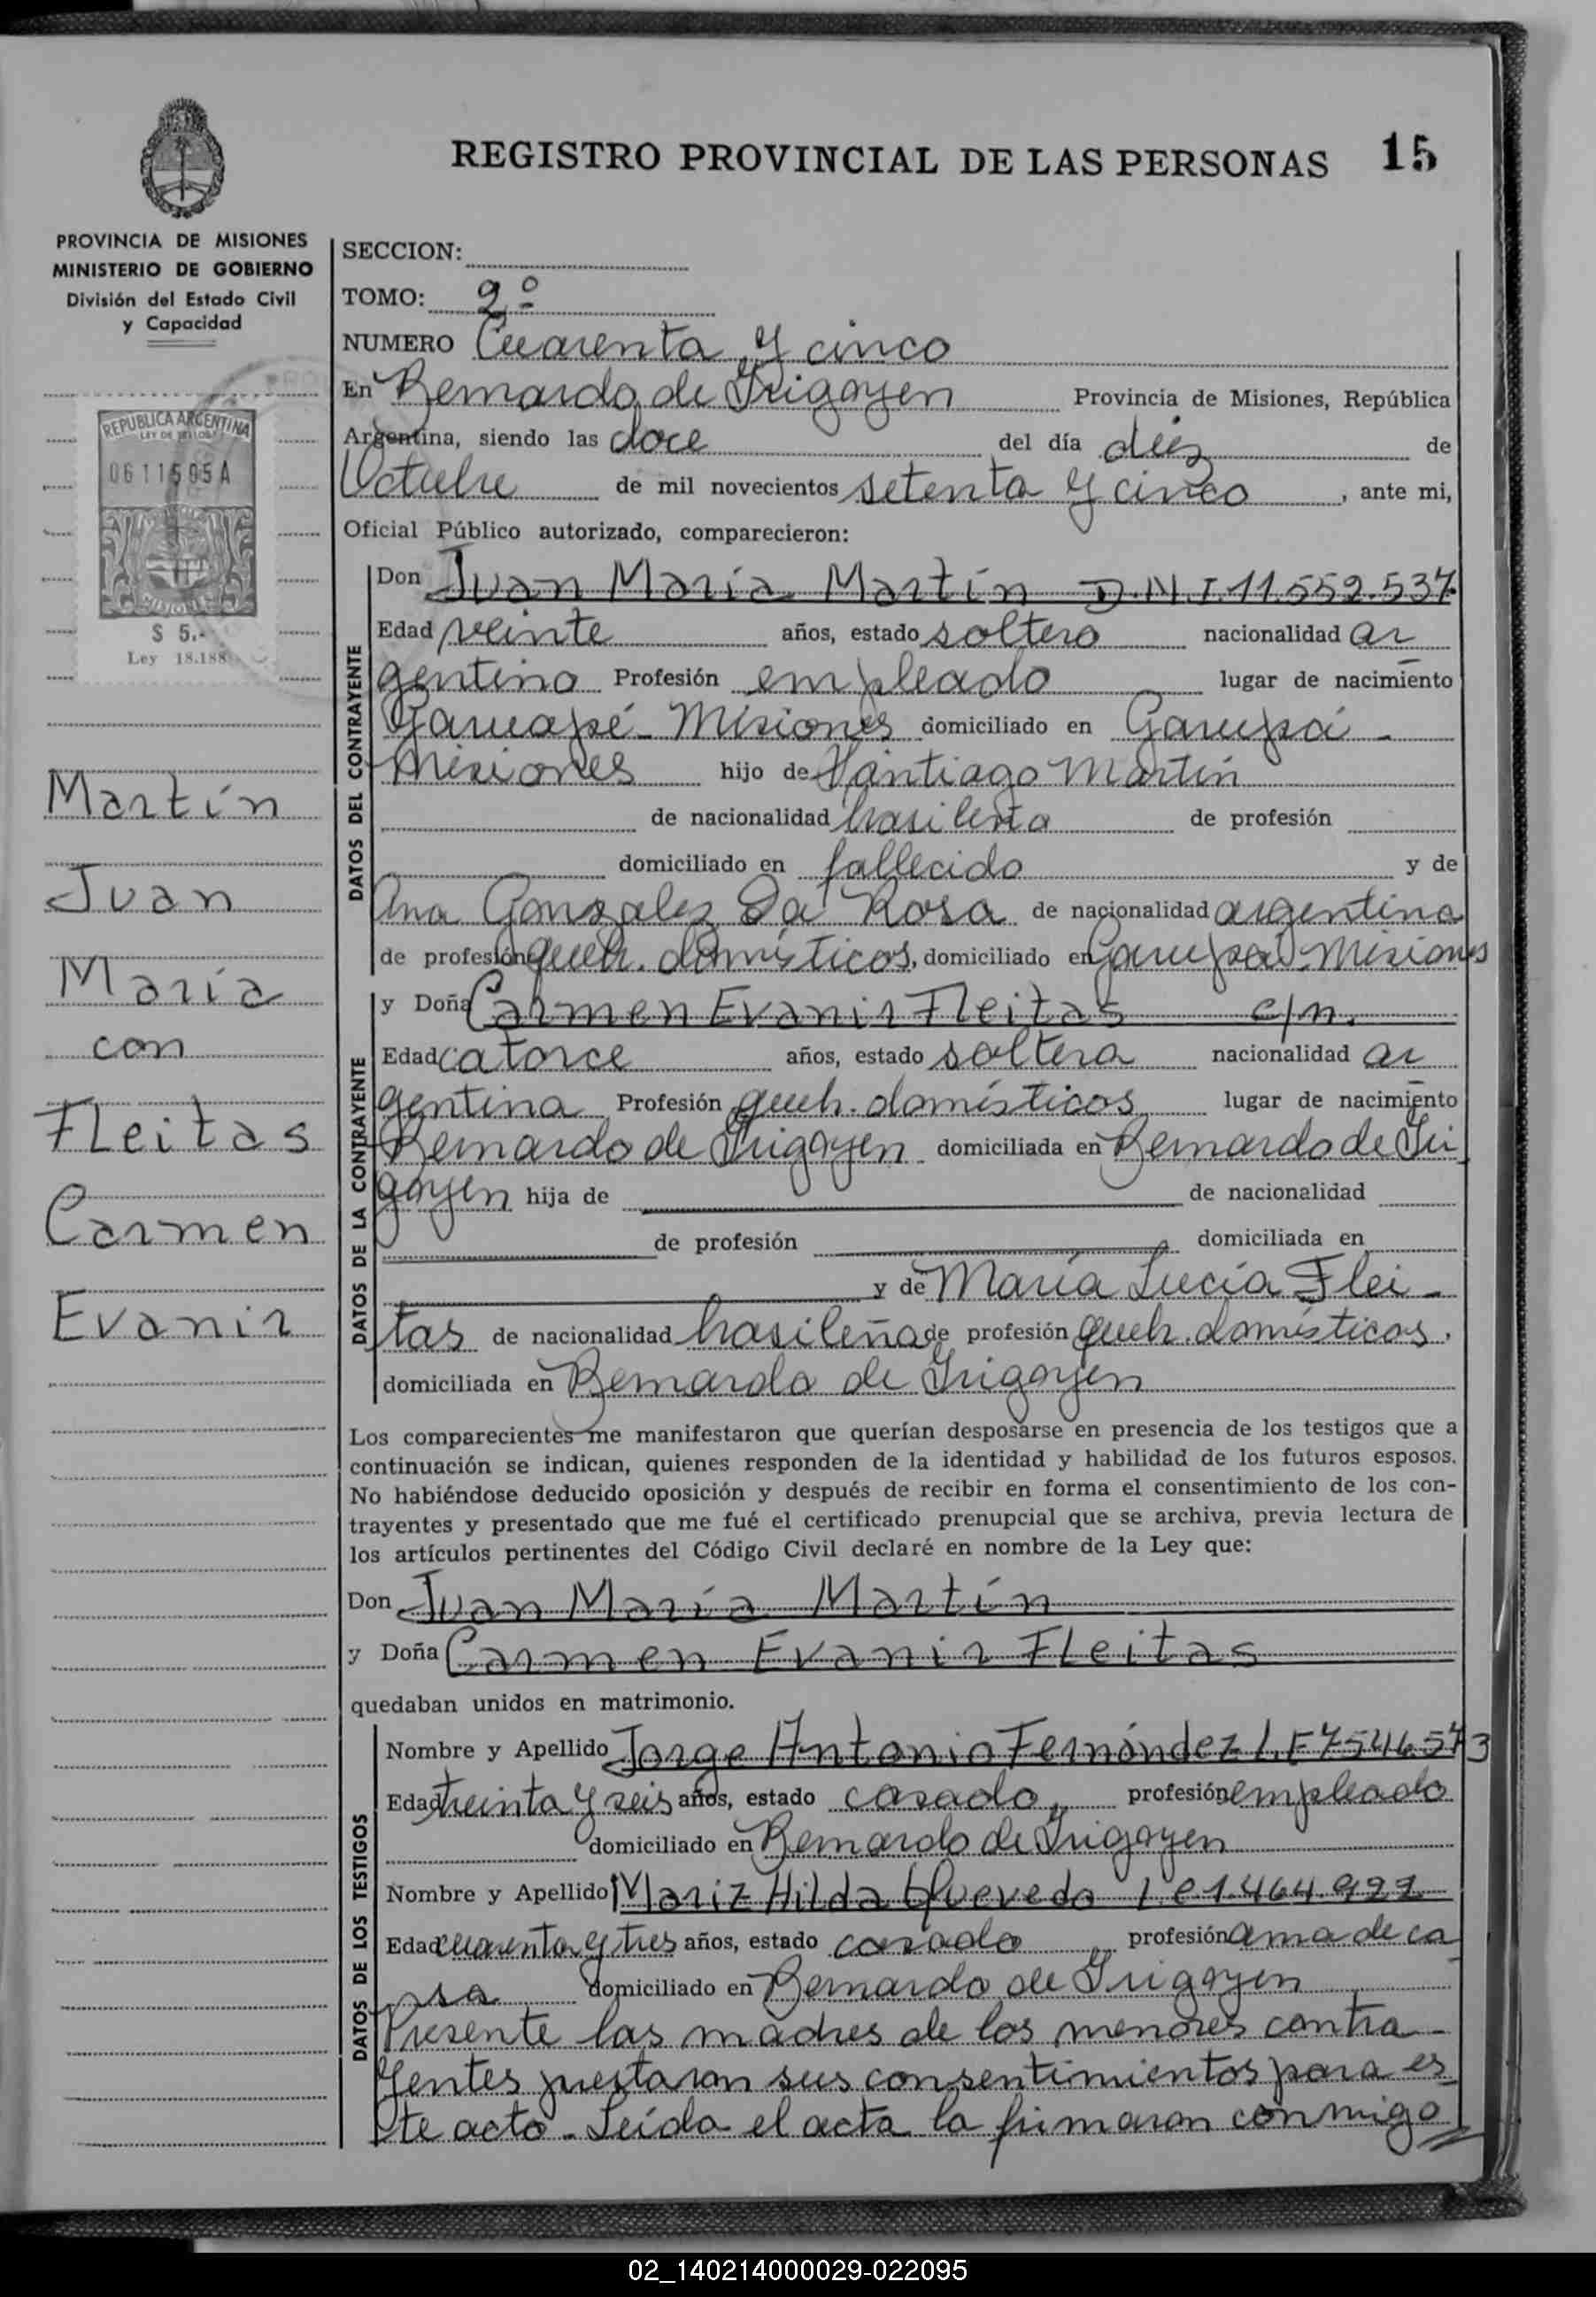 REGISTRO PROVINCIAL DE LAS PERSONAS 15
PROVINCIA DE MISIONES
MINISTERIO DE GOBIERNO
División del Estado Civil
y Capacidad
REPUBLICA ARGENTINA
LEY DE SELLOS
0611595A
MISIONES
$ 5.-
Ley 18.188
Martín
Juan
María
con
Fleitas
Carmen
Evanir
SECCION:
TOMO: 2º
NUMERO Cuarenta y cinco
En Bernardo de Irigoyen Provincia de Misiones, República
Argentina, siendo las doce del día diez de
Octubre de mil novecientos setenta y cinco, ante mi,
Oficial Público autorizado, comparecieron:
DATOS DEL CONTRAYENTE
Don Juan María Martín D.N.I. 11.552.537
Edad veinte años, estado soltero nacionalidad ar
gentino Profesión empleado lugar de nacimiento
Garuapé - Misiones domiciliado en Garupá -
Misiones hijo de Santiago Martín
de nacionalidad brasileña de profesión
domiciliado en fallecido y de
Ana Gonzalez Da Rosa de nacionalidad argentina
de profesión queh. domésticos, domiciliado en Garupá Misiones
DATOS DE LA CONTRAYENTE
y Doña Carmen Evanir Fleitas c/n.
Edad catorce años, estado soltera nacionalidad ar
gentina Profesión queh. domésticos lugar de nacimiento
Bernardo de Irigoyen domiciliada en Bernardo de Iri
goyen hija de de nacionalidad
de profesión domiciliada en
y de María Lucía Flei-
tas de nacionalidad brasileña de profesión queh. domésticos,
domiciliada en Bernardo de Irigoyen
Los comparecientes me manifestaron que querían desposarse en presencia de los testigos que a
continuación se indican, quienes responden de la identidad y habilidad de los futuros esposos.
No habiéndose deducido oposición y después de recibir en forma el consentimiento de los con-
trayentes y presentado que me fué el certificado prenupcial que se archiva, previa lectura de
los artículos pertinentes del Código Civil declaré en nombre de la Ley que:
Don Juan María Martín
y Doña Carmen Evanir Fleitas
quedaban unidos en matrimonio.
DATOS DE LOS TESTIGOS
Nombre y Apellido Jorge Antonio Fernández L.E 7546573
Edad treinta y seis años, estado casado, profesión empleado
domiciliado en Bernardo de Irigoyen
Nombre y Apellido Hilda Quevedo L.C 1.464.922
Edad cuarenta y tres años, estado casado profesión ama de ca
sa domiciliado en Bernardo de Irigoyen
Presente las madres de los menores contra-
yentes prestaron sus consentimientos para es
te acto. Leída el acta la firmaron conmigo
02_140214000029-022095